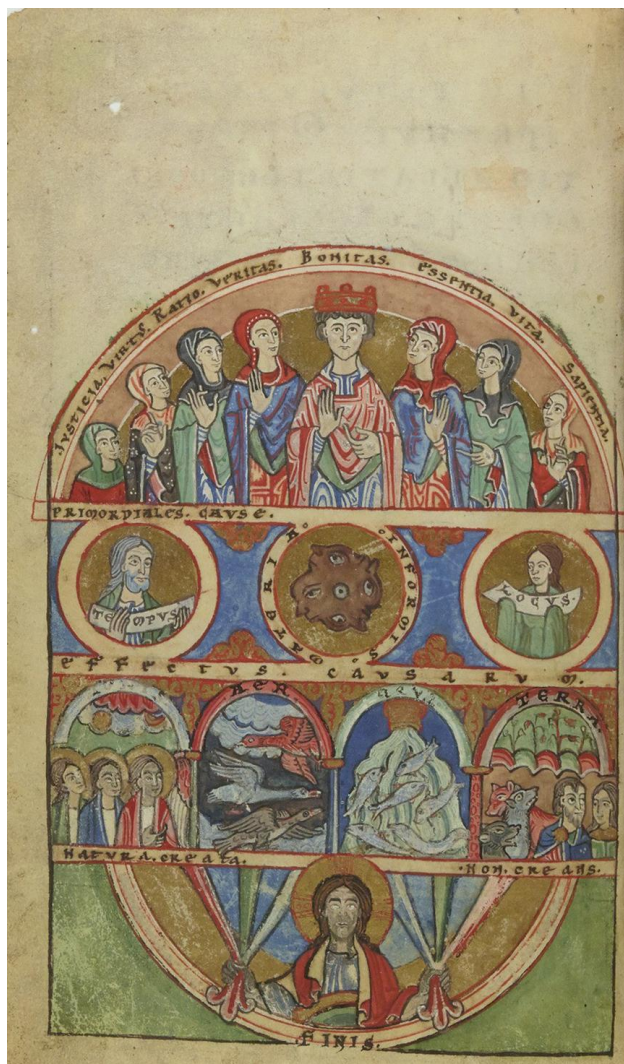 IUSTICIA. VIRTUS. RATIO. VERITAS. BONITAS. ESSENTIA. VITA. SAPIENTIA.
PRIMORDIALES. CAUSE.
TEMPUS
MATERIA INFORMIS
LOCUS
EFFECTUS. CAUSARUM.
AER
TERRA
NATURA. CREATA. NON. CREANS.
FINIS.